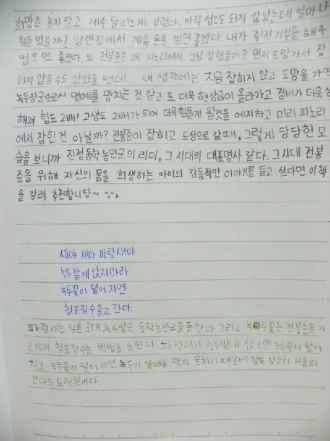 희망을 놓지 않고 계속 달리는게 부럽다. 아직 성인도 되지 않았는데 얼마나
힘들었을까? 양반집에서 계속 돈을 받으면 좋겠다. 내가 직접 기부를 해주
었으면 좋겠다. 또 전봉준은 왜 피노리에서 그냥 잡혔을까? 먼저 도망가서 잡
히지 않을수도 있었을 텐데.. 내 생각에는 지금 잡히지 않고 도망을 가면
녹두장군으로서 명예를 망치는 것 같고 또 더욱 현상금이 올라가고 경비가 더욱 심
해져 힘도 2배! 고생도 2배가 되어 더욱 힘들게 될것을 예지하고 미리 피노리
에서 잡힌 건 아닐까? 전봉준이 잡히고 도성으로 갈때, 그렇게 당당한 모
습을 보니까 진정 동학 농민군의 리더, 그 시대의 대표명사 같다. 그시대 전봉
준을 위해 자신의 몸을 희생하는 아이의 감동적인 이야기를 듣고 싶다면 이 책
을 강력 추천합니다~
새야 새야 파란새야
녹두밭에 앉지마라
녹두꽃이 떨어지면
청포장수 울고 간다.
파랑새는 일본 군대, 녹두밭은 동학농민군을 뜻한다 그리고 녹두꽃은 전봉준을
청포장수는 백성을 뜻한다. 파랑새가 녹두밭에 앉으면 녹두꽃이 떨어
지고 녹두꽃이 떨어지면 녹두가 열매를 맺지 못하기 때문에 청포장수가